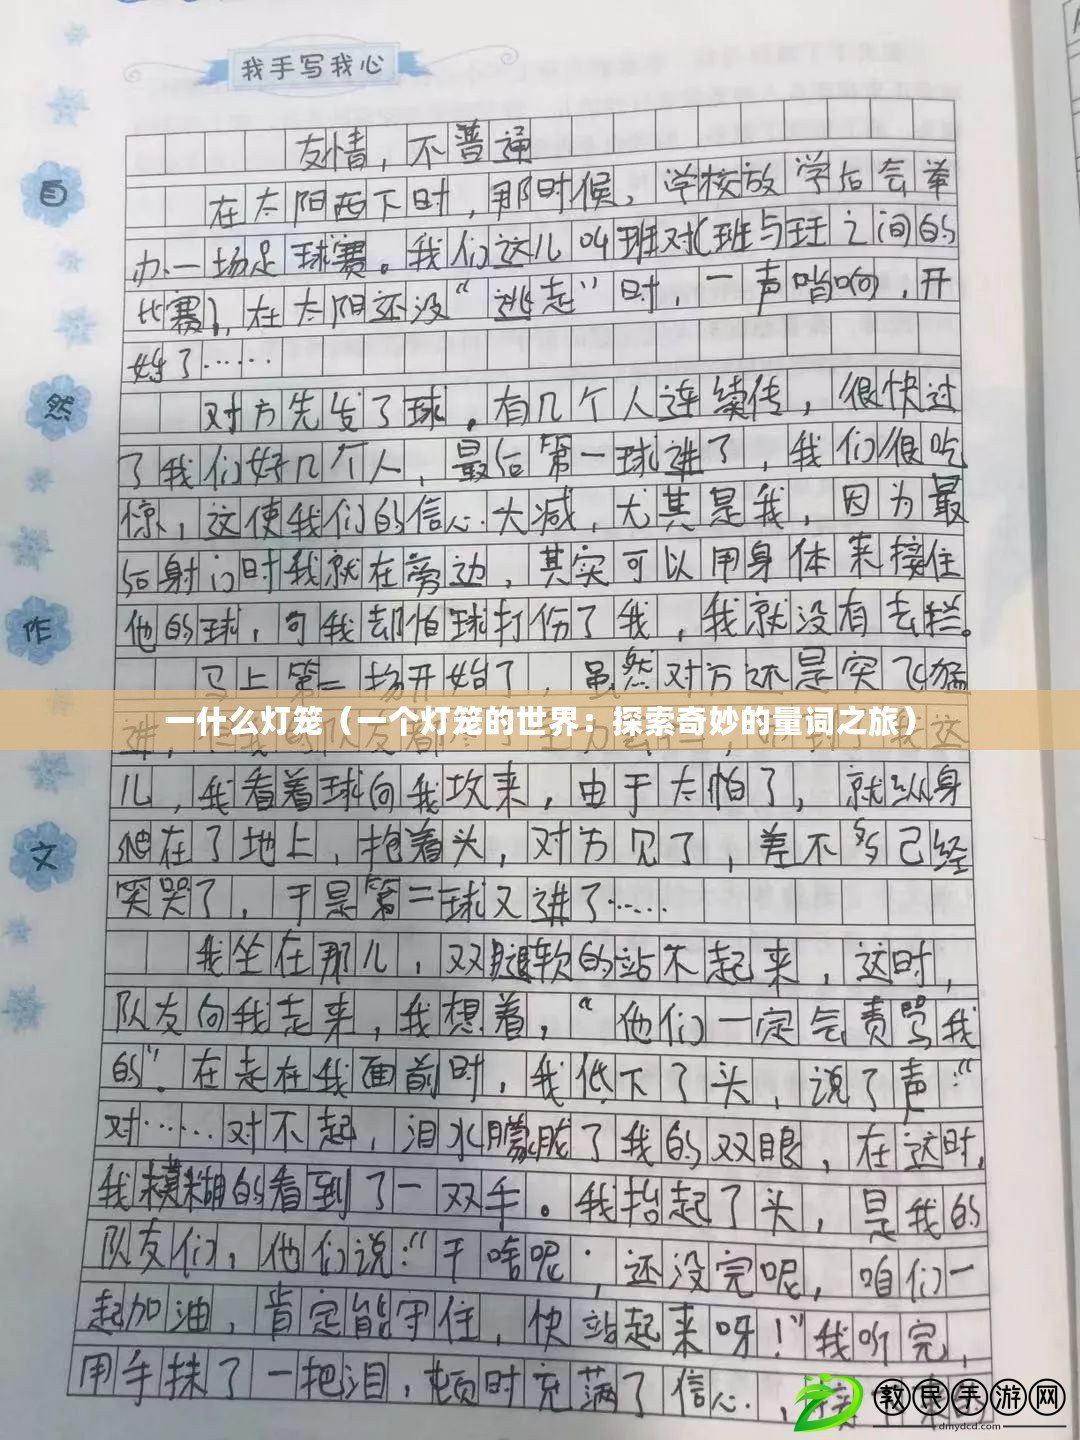 我手写我心
友情，不普通
在太阳西下时，那时候，学校放学后会举
办一场足球赛。我们这儿叫班对(班与班之间的
比赛)，在太阳还没“逃走”时，一声哨响，开
始了……
对方先发了球。有几个人连续传，很快过
了我们好几个人，最后第一球进了，我们很吃
惊，这使我们的信心大减，尤其是我，因为最
后射门时我就在旁边，其实可以用身体来接住
他的球，可我却怕球打伤了我，我就没有去拦。
马上第二场开始了，虽然对方还是突飞猛
一什么灯笼（一个灯笼的世界：探索奇妙的量词之旅）
进，
儿，我看着球向我攻来，由于太怕了，就纵身
爬在了地上，抱着头，对方见了，差不多已经
笑哭了，于是第二球又进了……
我坐在那儿，双腿软的站不起来，这时，
队友向我走来，我想着，“他们一定会责骂我
的”。在走在我面前时，我低下了头，说了声：“
对……对不起，泪水朦胧了我的双眼，在这时，
我模糊的看到了一双手。我抬起了头，是我的
队友们，他们说：“干啥呢，还没完呢，咱们一
起加油，肯定能守住，快站起来呀！”我听完，
用手抹了一把泪，顿时充满了信心，
自
然
作
文
教民手游网
dmydcd.com